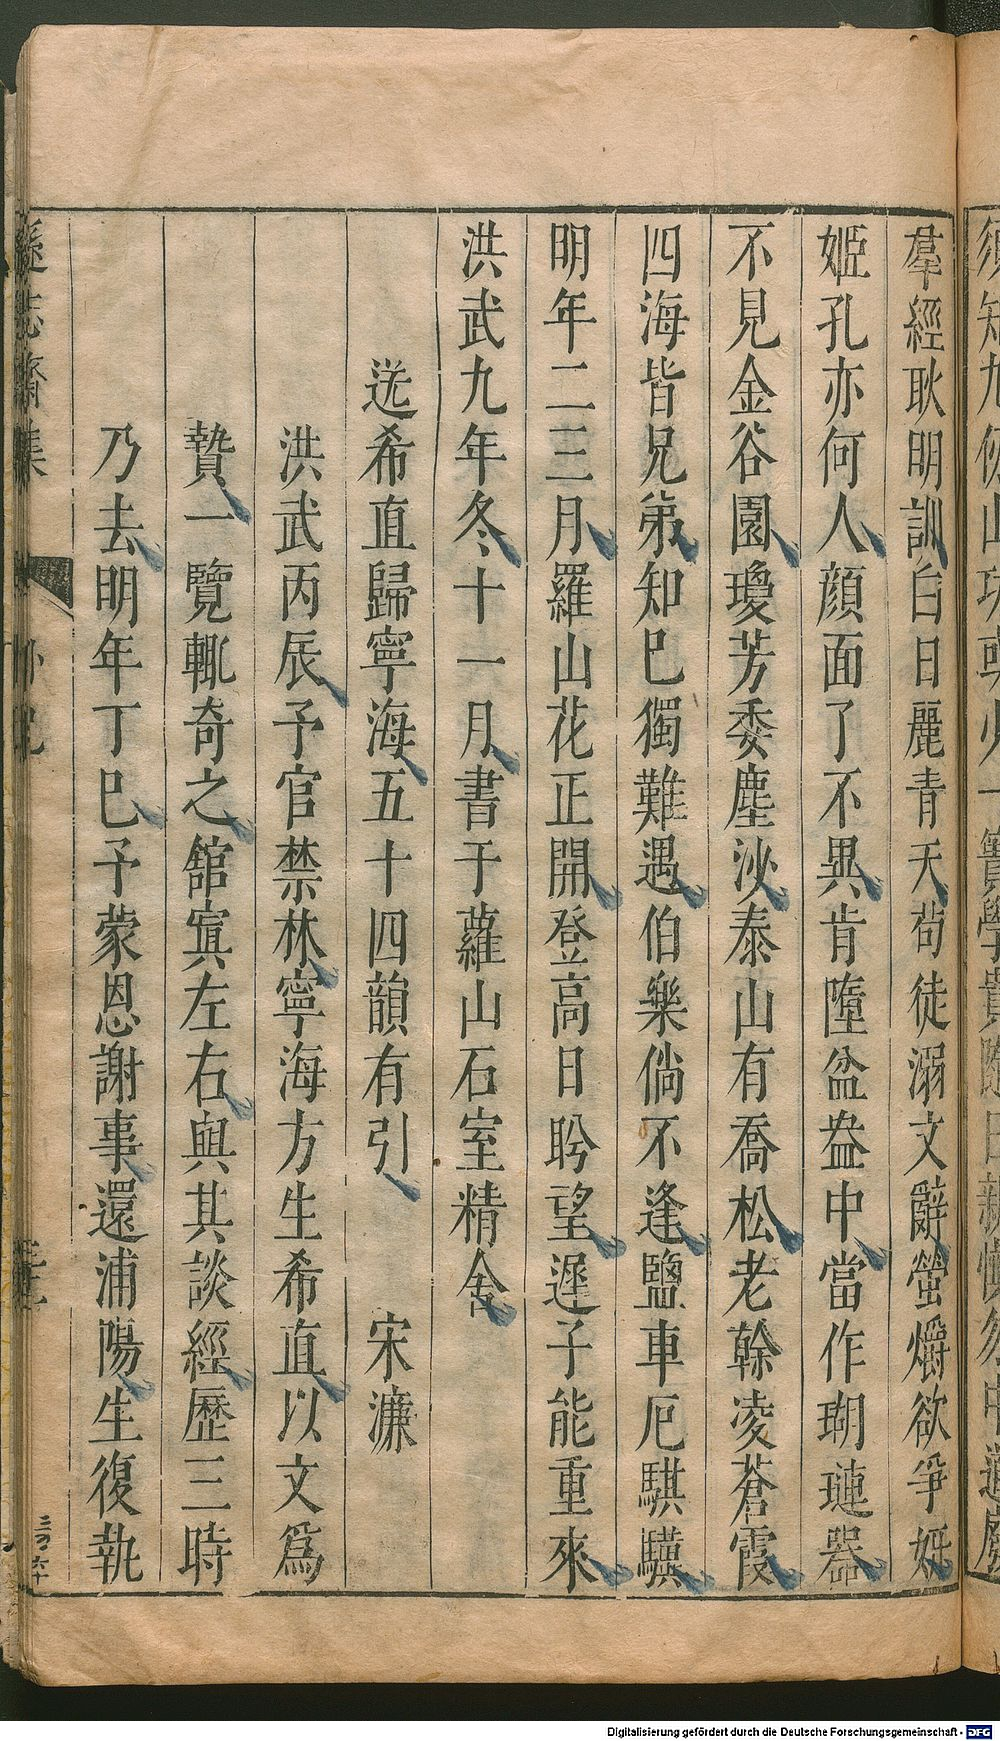 羣經耿明訓白日麗青天茍徒溺文辭螢爝欲爭妍
姬孔亦何人顏面了不異肯墮盆盎中當作瑚璉器
不見金谷園瓊芳委塵沙泰山有喬松老榦凌蒼霞
四海皆兄弟知巳獨難遇伯樂倘不逢鹽車厄騏驥
明年二三月羅山花正開登高日盻望遲子能重來
洪武九年冬十一月書于蘿山石室精舍
送希直歸寧海五十四韻有引 宋濂
洪武丙辰予官禁林寧海方生希直以文爲
贄一覽輒奇之舘寘左右與其談經歷三時
乃去明年丁巳予蒙恩謝事還浦陽生復執
遜志齋集
Digitalisierung gefördert durch die Deutsche Forschungsgemeinschaft - DFG